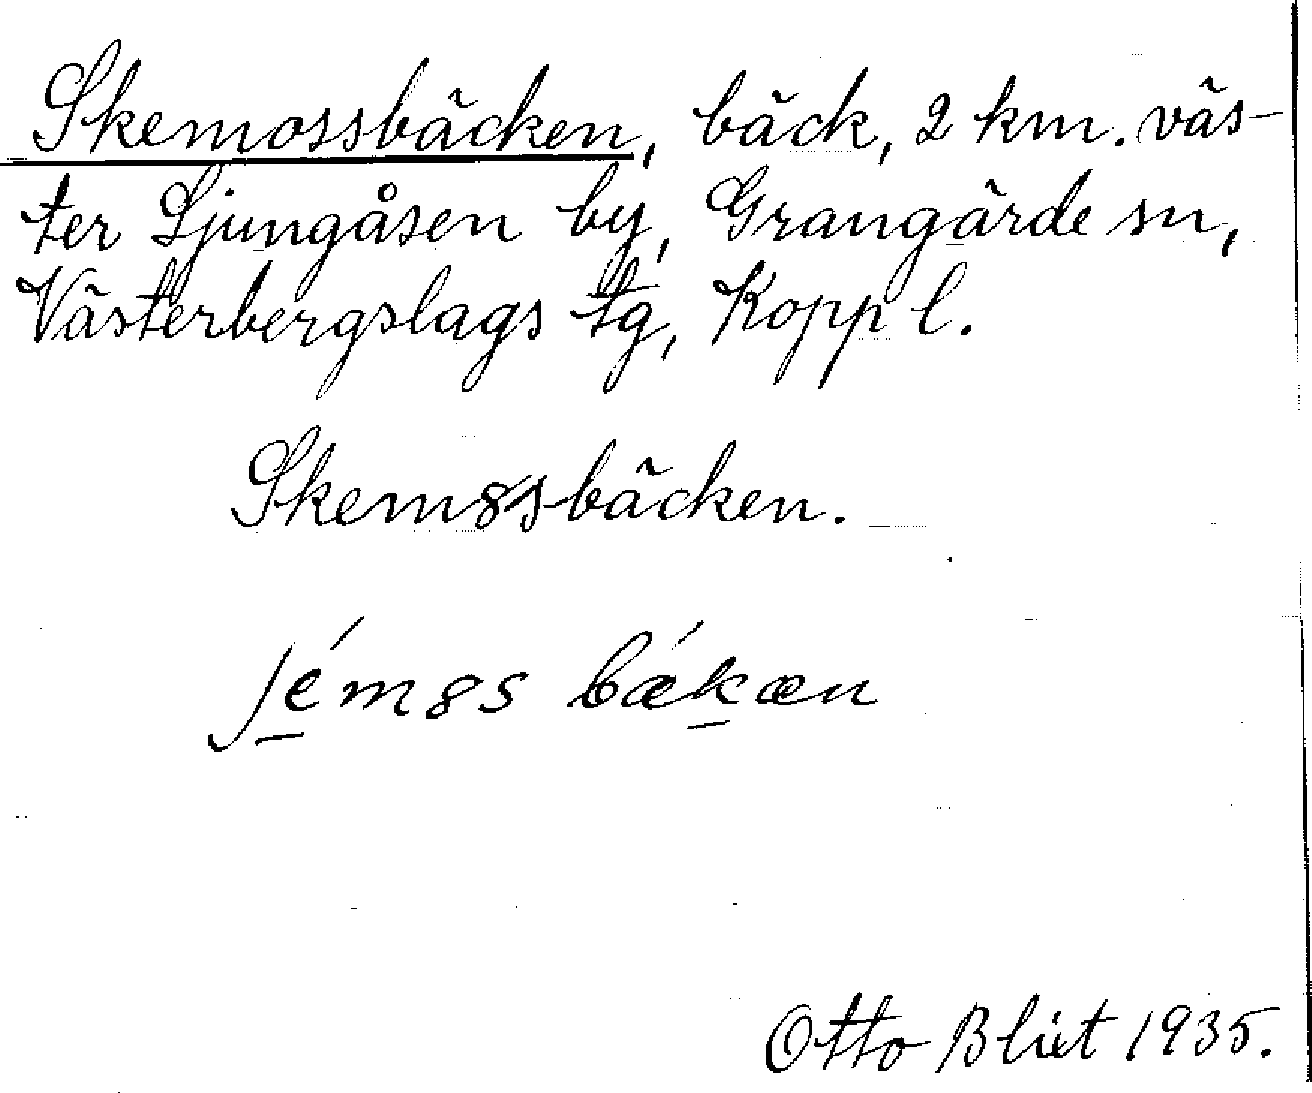 Skemossbäcken, bäck, 2 km. väs-
ter Ljungåsen by, Grangärde sn,
Västerbergslags tg, Kopp l.
Skem8sbäcken.
ʃém8s bǽkæn
Otto Blixt 1935.